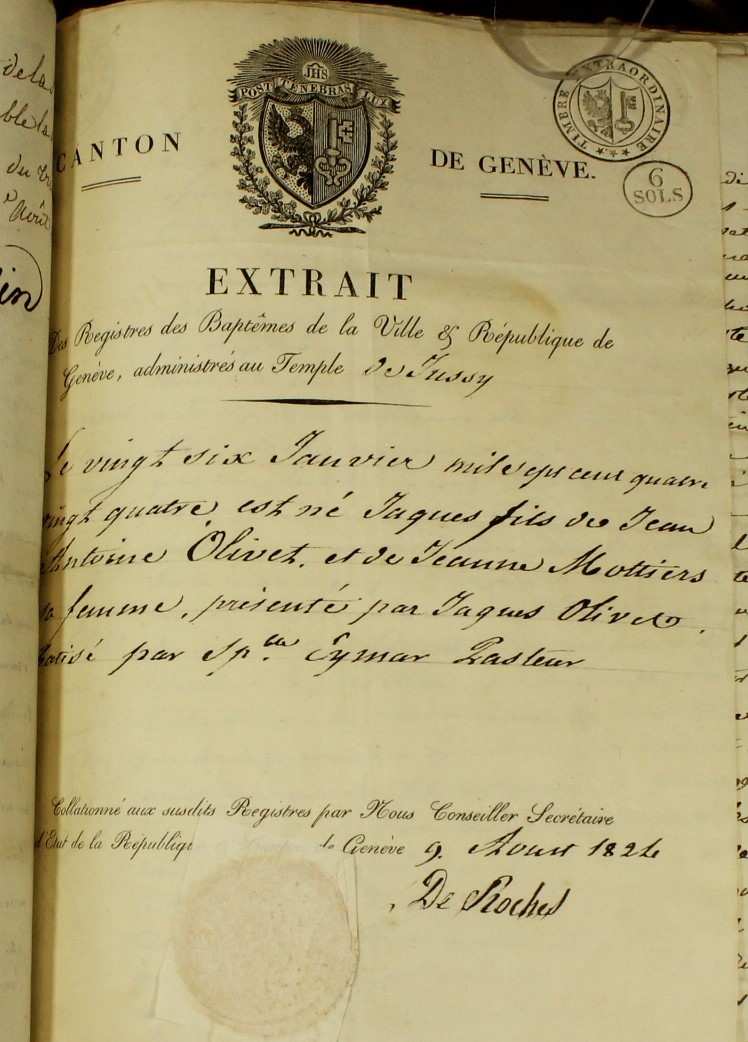 JHS
POST TENEBRAS LUX
CANTON DE GENÈVE.
TIMBRE EXTRAORDINAIRE
6
SOLS
EXTRAIT
Des Registres des Baptêmes de la Ville & République de
Genève, administrés au Temple de Jussy
Le vingt six Janvier mil sept cent quatre
vingt quatre est né Jaques fils de Jean
Antoine Olivet, et de Jeanne Mottiers
sa femme, présenté par Jaques Olivet,
batisé par Sp.cle Eymar Pasteur
Collationné aux susdits Registres par Nous Conseiller Secrétaire
d'Etat de la République Genève 9. Aoust 1824
De Roches
de la